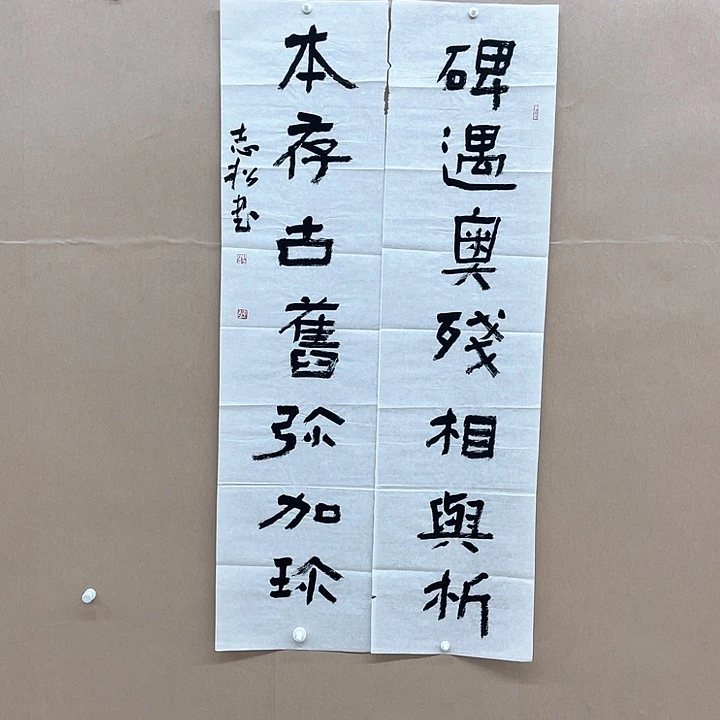 碑遇奥殘相與析
本存古舊弥加珎
志松書